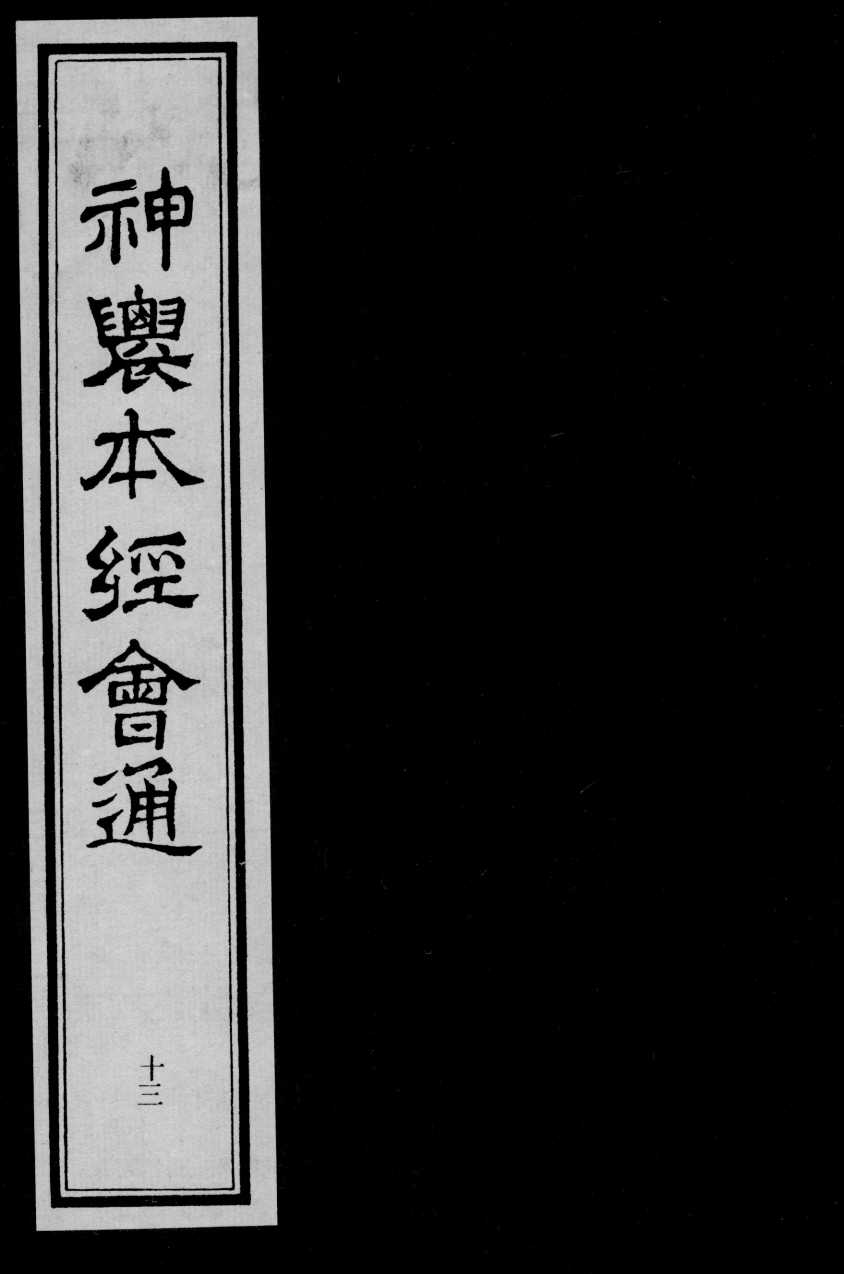 神農本經會通
十三